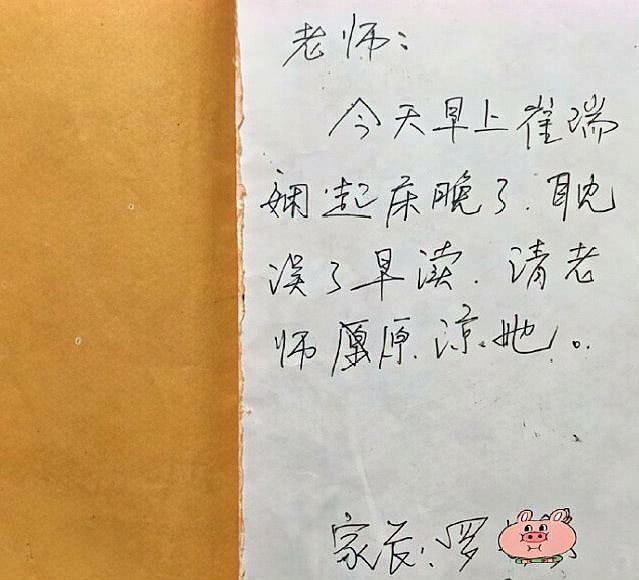 老师：
今天早上崔瑞
娴起床晚了．耽
误了早读．请老
师原谅她。
家长：罗